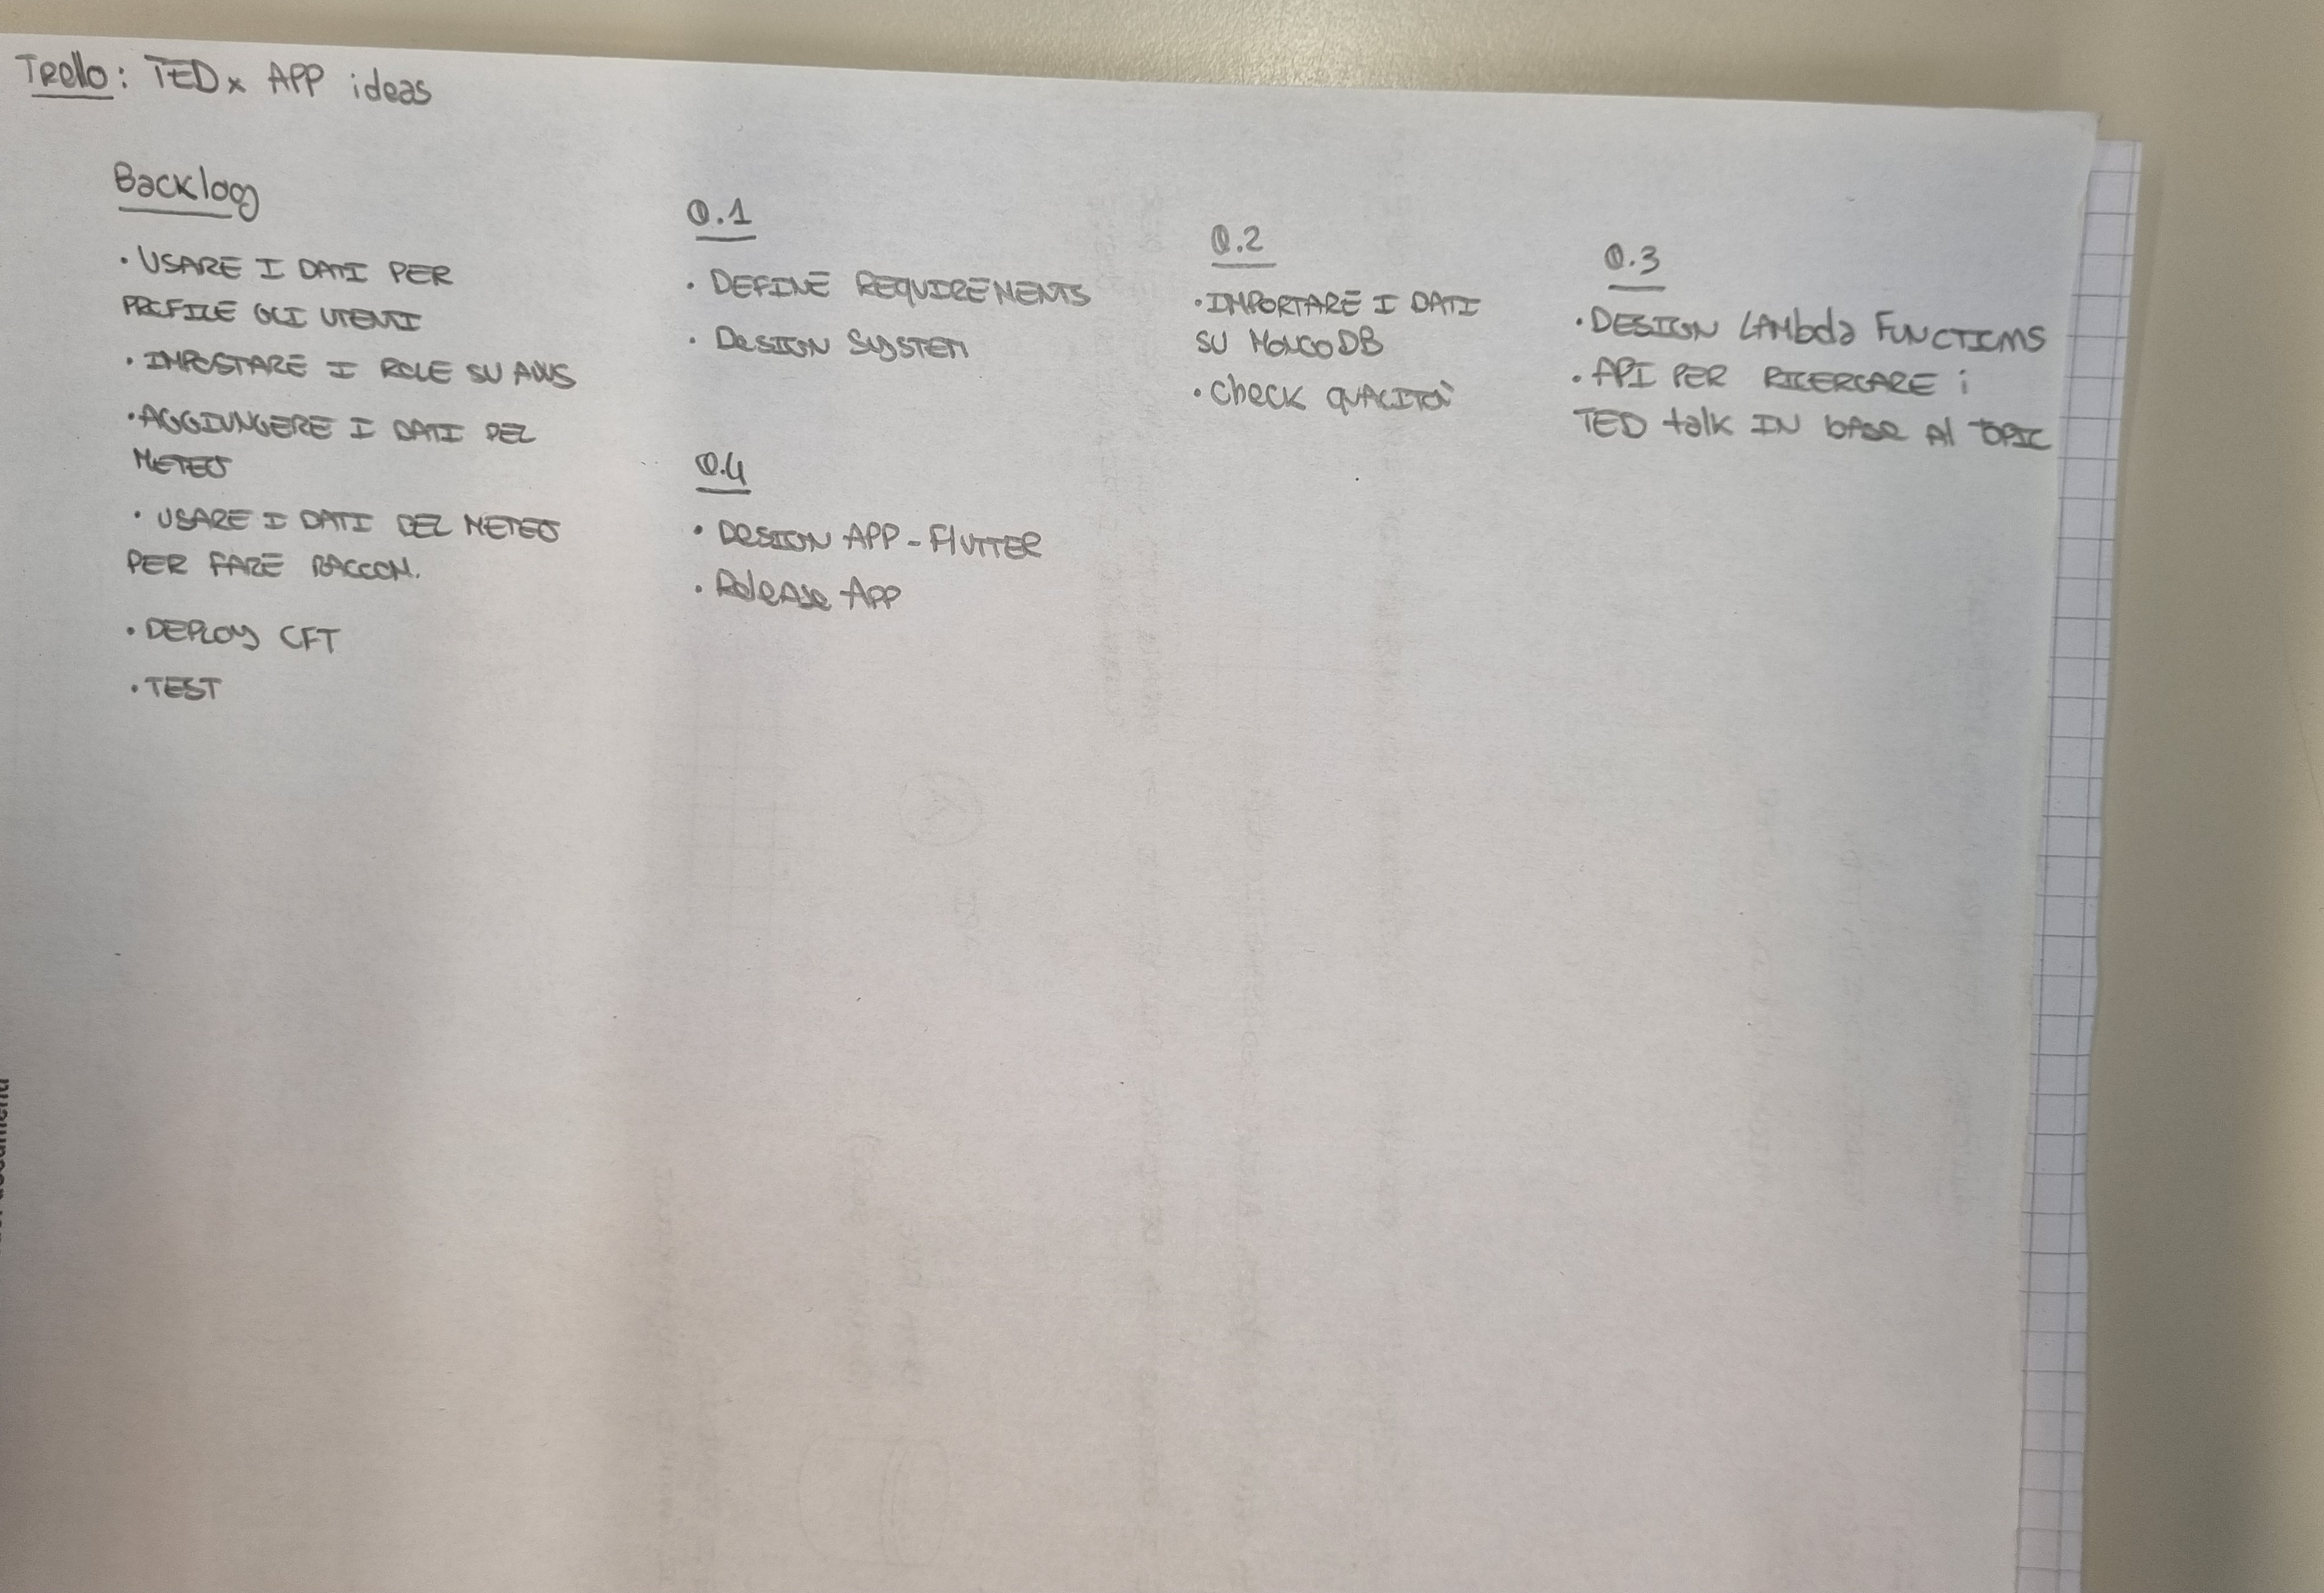 Trello: TEDx APP ideas
Backlog
• USARE I DATI PER
PROFILE GLI UTENTI
• IMPOSTARE I ROLE SU AWS
• AGGIUNGERE I DATI DEL
METEO
• USARE I DATI DEL METEO
PER FARE RACCOM.
• DEPLOY CFT
• TEST
Q.1
• DEFINE REQUIREMENTS
• DESIGN SYSTEM
Q.4
• DESIGN APP - FlUTTER
• Release App
Q.2
• IMPORTARE I DATI
SU MONGODB
• Check QUALITÀ
Q.3
• DESIGN LAMbda FUNCTIONS
• API PER RICERCARE i
TED talk IN base Al TOPIC